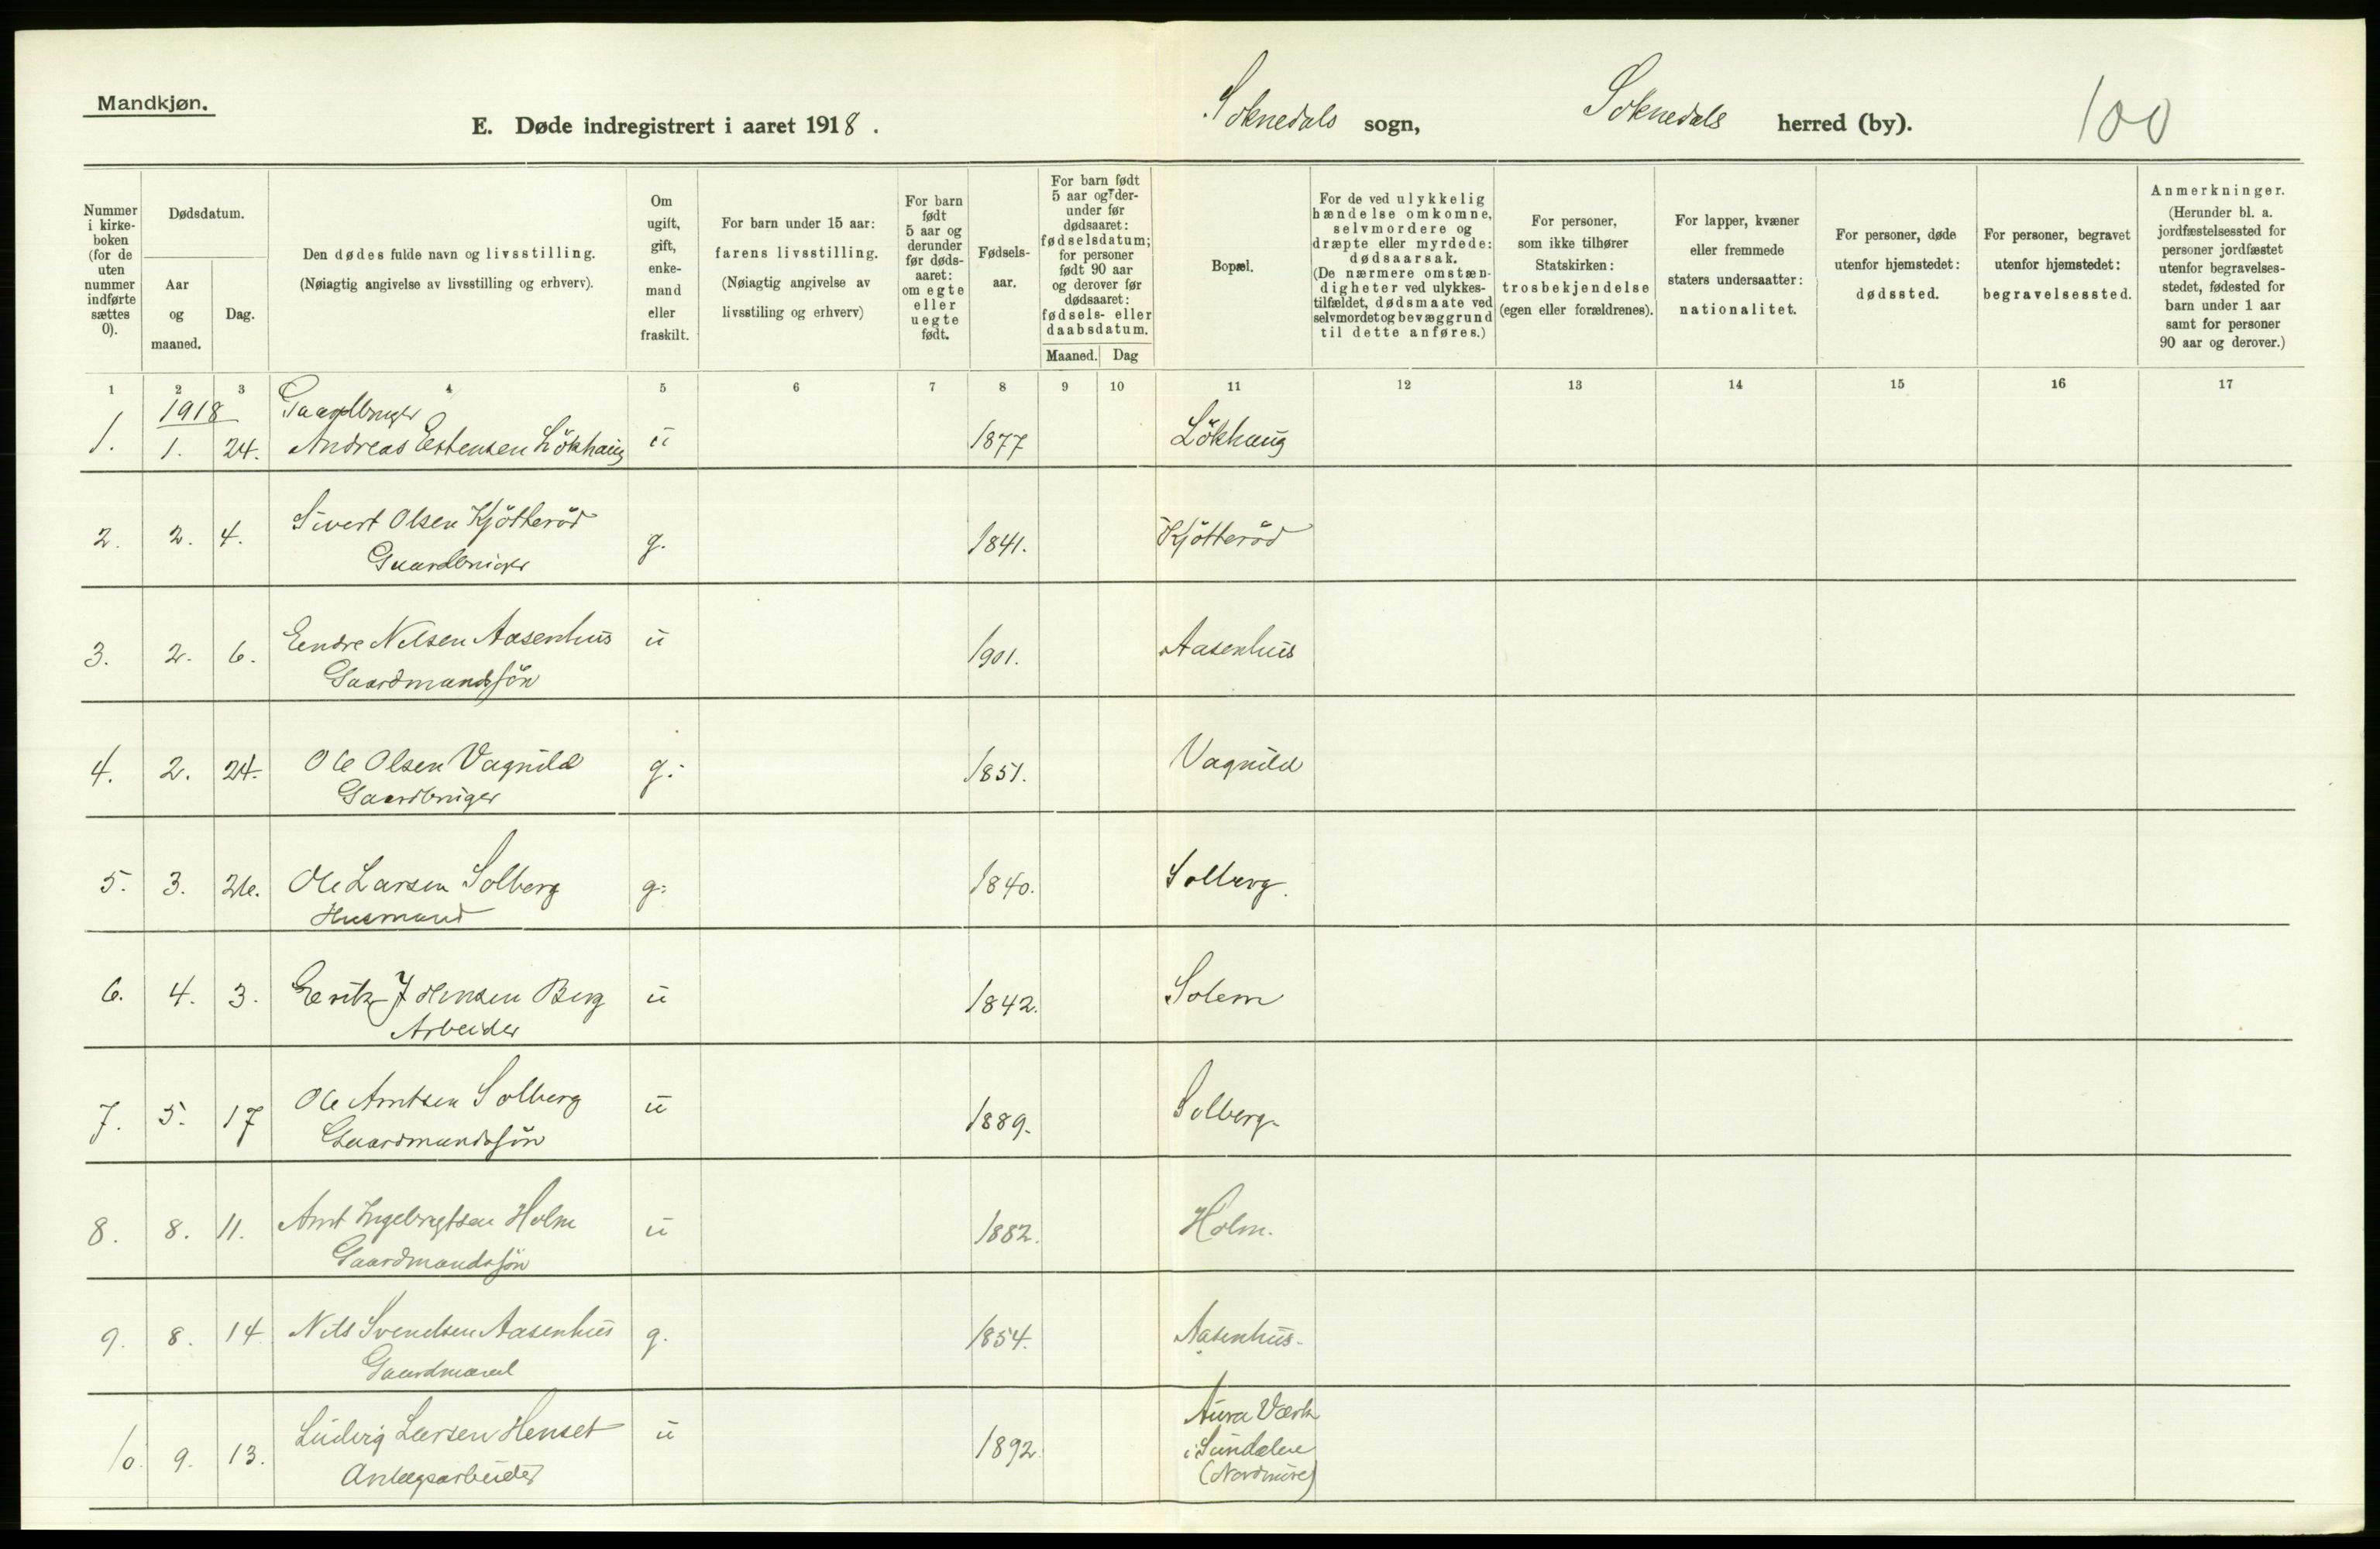 Mandkjøn.
E. Døde indregistrert i aaret 1918.
Soknedals sogn, Soknedals herred (by). 100
Nummer i kirke- boken (for de uten nummer indførte sættes 0).
Dødsdatum.
Aar og maaned.
Dag.
Den dødes fulde navn og livsstilling.
(Nøiagtig angivelse av livsstilling og erhverv).
Om ugift, gift, enke- mand eller fraskilt.
For barn under 15 aar: farens livsstilling.
(Nøiagtig angivelse av livsstiling og erhverv)
For barn født 5 aar og derunder før døds- aaret: om egte eller uegte født.
Fødsels- aar.
For barn født 5 aar og der- under før dødsaaret: fødselsdatum; for personer født 90 aar og derover før dødsaaret: fødsels- eller daabsdatum.
Maaned. Dag
Bopæl.
For de ved ulykkelig hændelse omkomne, selvmordere og dræpte eller myrdede: dødsaarsak.
(De nærmere omstæn- digheter ved ulykkes- tilfældet, dødsmaate ved selvmordet og bevæggrund til dette anføres.)
For personer, som ikke tilhører Statskirken: trosbekjendelse (egen eller forældrenes).
For lapper, kvæner eller fremmede staters undersaatter: nationalitet.
For personer, døde utenfor hjemstedet: dødssted.
For personer, begravet utenfor hjemstedet: begravelsessted.
Anmerkninger.
(Herunder bl. a. jordfæstelsessted for personer jordfæstet utenfor begravelses- stedet, fødested for barn under 1 aar samt for personer 90 aar og derover.)
1 2 3 4 5 6 7 8 9 10 11 12 13 14 15 16 17
1918 Gaardbruger
1. 1. 24. Andreas Estensen Lökhaug u 1877 Lökhaug
2. 2. 4. Sivert Olsen Kjötteröd g. 1841. Kjötteröd
Gaardbruger
3. 2. 6. Eendre Nilsen Aasenhus u 1901. Aasenhus
Gaardmandssön
4. 2. 24. Ole Olsen Vagnild g. 1851. Vagnild
Gaardbruger
5. 3. 26. Ole Larsen Solberg g. 1840. Solberg.
Husmand
6. 4. 3. Eerik Johnsen Berg u 1842. Solem
Arbeider
7. 5. 17 Ole Arntsen Solberg u 1889. Solberg.
Gaardmandssön
8. 8. 11. Arnt Ingebrigtsen Holm u 1882. Holm.
Gaardmandssön
9. 8. 14 Nils Svendsen Aasenhus g. 1854. Aasenhus.
Gaardmand
10. 9. 13. Ludvig Larsen Henset u 1892. Aura Værk
Anlægsarbeider i Sundalen
(Nordmøre)